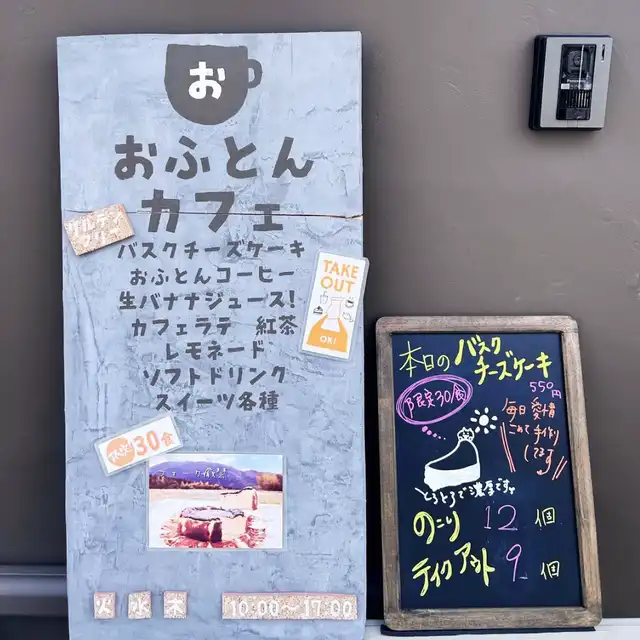 お
おふとん
カフェ
グルテン
フリー
バスクチーズケーキ
おふとんコーヒー
生バナナジュース!
カフェラテ 紅茶
レモネード
ソフトドリンク
スイーツ各種
TAKE
OUT
OK!
30食
火 水 木
10:00〜17:00
本日のバスク
チーズケーキ
550円
限定30食
毎日愛情
こめて手作り
してます
とろとろで濃厚です
のこり 12 個
テイクアウト 9 個